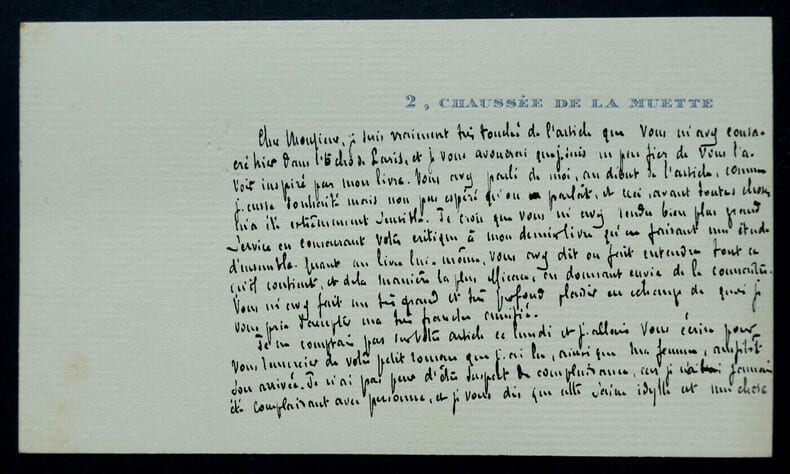 2, CHAUSSÉE DE LA MUETTE
Cher Monsieur, je suis vraiment très touché de l'article que vous m'avez consa-
cré hier dans l'Echo de Paris, et je vous avouerai que je suis un peu fier de vous l'a-
voir inspiré par mon livre. Vous avez parlé de moi, au début de l'article, comme
j'eusse souhaité mais non pas espéré qu'on parlât, et ceci, avant toutes choses
m'a été extrêmement sensible. Je crois que vous m'avez rendu bien plus grand
service en consacrant votre critique à mon dernier livre qu'en faisant une étude
d'ensemble. Quant au livre lui-même, vous avez dit ou fait entendre tout ce
qu'il contient, et de la manière la plus efficace, en donnant envie de le connaître.
Vous m'avez fait un très grand et très profond plaisir en échange de quoi je
vous prie d'accepter ma très franche amitié.
Je ne comptais pas sur votre article ce lundi et j'allais vous écrire pour
vous remercier de votre petit roman que j'ai lu, ainsi que ma femme, aussitôt
son arrivée. Je n'ai pas peur d'être suspect de complaisance, car je n'ai jamais
été complaisant avec personne, et je vous dis que cette idylle est une chose